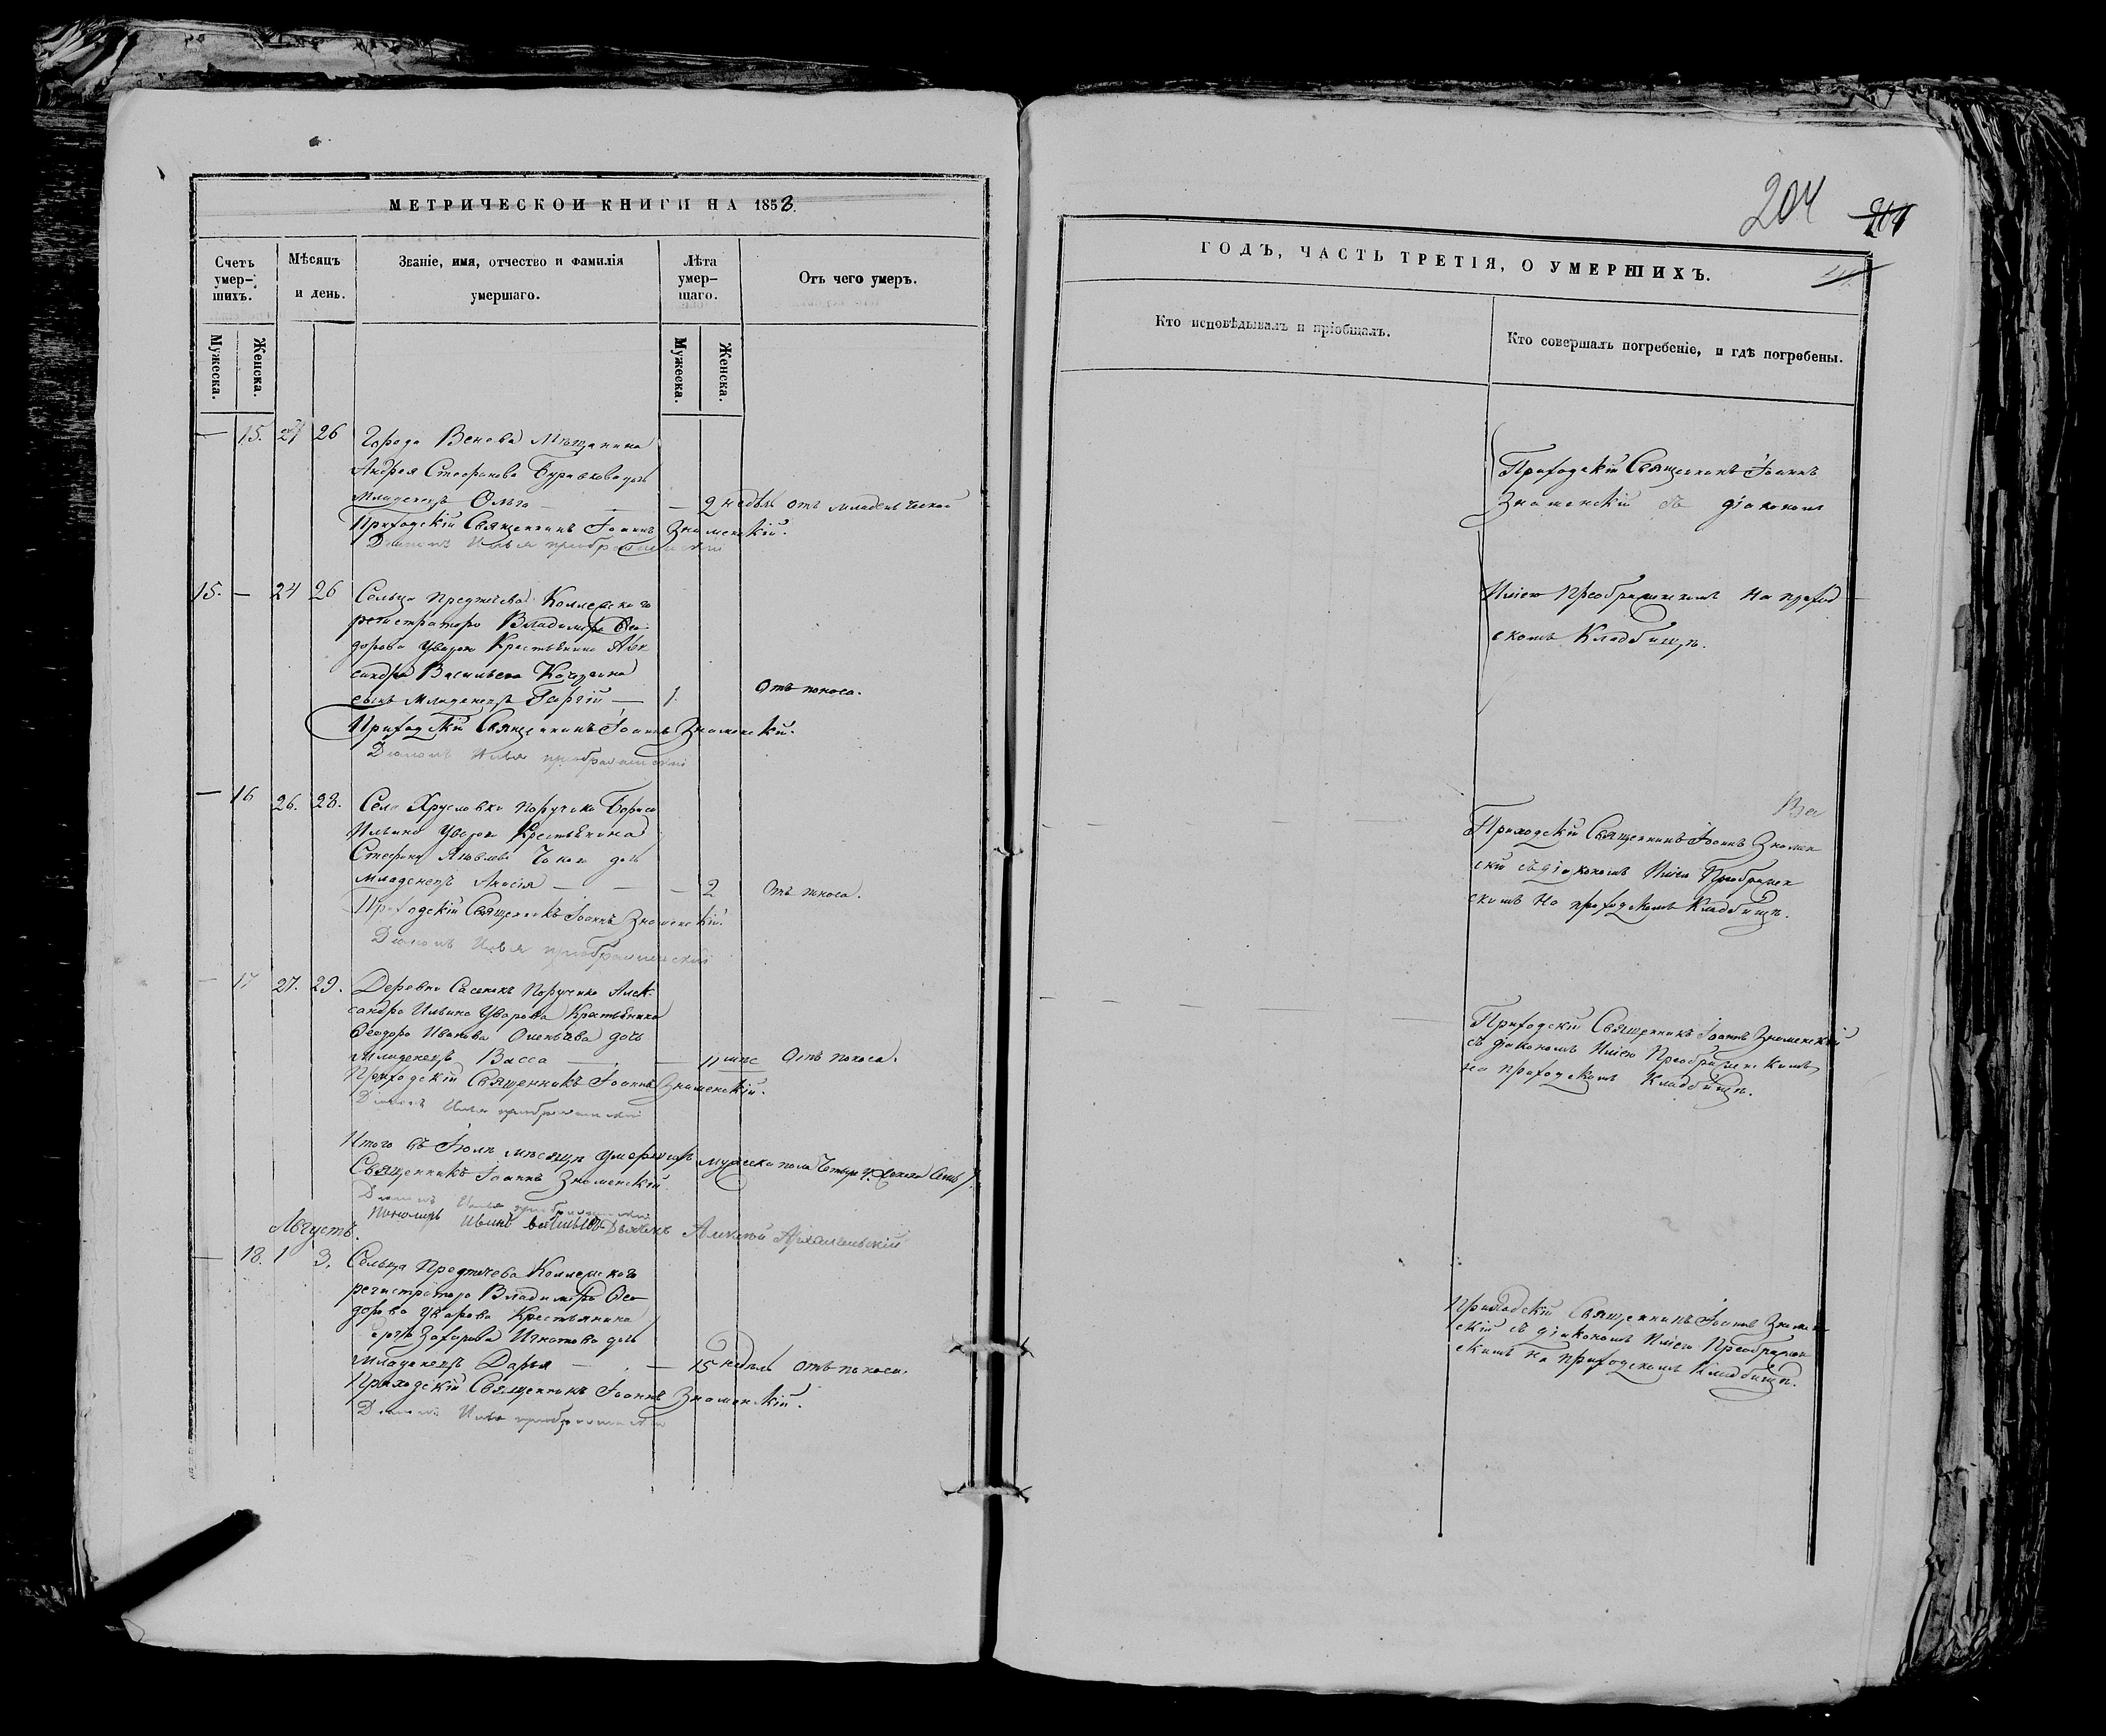 МЕТРИЧЕСКОЙ КНИГИ НА 1858.
Счетъ умер-шихъ.
Мѣсяцъ и день.
Званіе, имя, отчество и фамилія умершаго.
Лѣта умер-шаго.
Отъ чего умеръ.
Мужеска.
Женска.
Мужеска.
Женска.
— 15. 24 26 Города Венева Мѣщанина
Андрея Стефанова дочь
Младенецъ Ольга — — 2 недѣль отъ младенческой
Приходскій Священникъ Іоаннъ Знаменскій.
Діаконъ Илья преображенскій
15. — 24 26 Сельца Предтечева Коллежскаго
регистратора Владимiра Ѳео-
дорова Уварова Крестьянина Алек
сандра Васильева
сынъ Младенецъ Георгій — 1. Отъ поноса.
Приходскій Священникъ Іоаннъ Знаменскій.
Діаконъ Илья преображенскій
— 16 26. 28. Села Хрусловки Поручика Бориса
Ильина Уварова Крестьянина
Стефана Яковлева дочь
младенецъ — — — 2 Отъ поноса.
Приходскій Священникъ Іоаннъ Знаменскій.
Діаконъ Илья преображенскій
— 17 27. 29. Деревни Поручика Алек-
сандра Ильина Уварова Крестьянина
Ѳеодора Иванова дочь
Младенецъ Васса — — 11 мѣс Отъ поноса.
Приходскій Священникъ Іоаннъ Знаменскій.
Діаконъ Илья преображенскій
Итого въ Іюлѣ мѣсяцѣ умершихъ мужеска пола Четыре 4. женска Семь 7.
Священникъ Іоаннъ Знаменскій.
Діаконъ Илья преображенскій
Пономарь Дьячекъ Алексей Архангельскій
Августъ.
— 18. 1 3. Сельца Предтечева Коллежскаго
регистратора Владимiра Ѳео
дорова Уварова Крестьянина
Захарова Игнатова дочь
Младенецъ Дарья — — 15 недѣль отъ поноса.
Приходскій Священникъ Іоаннъ Знаменскій.
Діаконъ Илья преображенскій
204
ГОДЪ, ЧАСТЬ ТРЕТІЯ, О УМЕРШИХЪ.
Кто исповѣдывалъ и пріобщалъ.
Кто совершалъ погребеніе, и гдѣ погребены.
Приходскій Священникъ Іоаннъ
Знаменскій съ діакономъ
Иліею Преображенскимъ На приход
скомъ Кладбищѣ.
Приходскій Священникъ Іоаннъ Знамен
скій съ діакономъ Иліею Преображен
скимъ На приходскомъ Кладбищѣ.
Приходскій Священникъ Іоаннъ Знаменскій
съ діакономъ Иліею Преображенскимъ
на приходскомъ Кладбищѣ.
Приходскій Священникъ Іоаннъ Знамен
скій съ діакономъ Иліею Преображен
скимъ На приходскомъ Кладбищѣ.